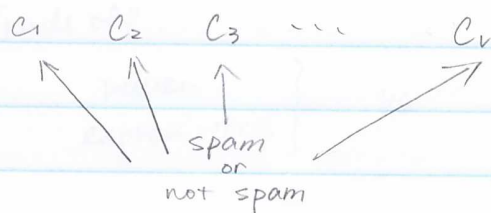 C1 C2 C3 ... Cv
spam
or
not spam